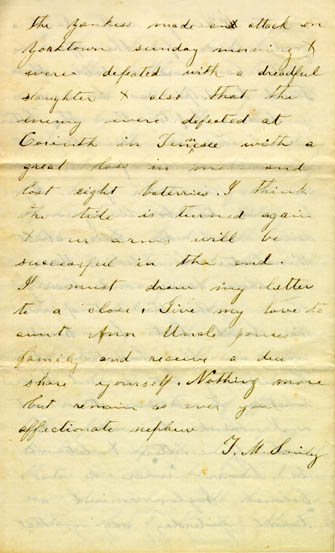 the yankess made an attack on
Yorktown sunday morning &
were defeated with a dreadful
slaughter & also that the
enemy were defeated at
Corinth in with a
great loss in men and
lost eight bateries. I think
the tide is turned again
& arms will be
successful in the end.
I must draw my letter
to a close. Give my love to
aunt Ann Uncle
family and receive a due
share yourself. Nothing more
but remain as ever your
affectionate nephew